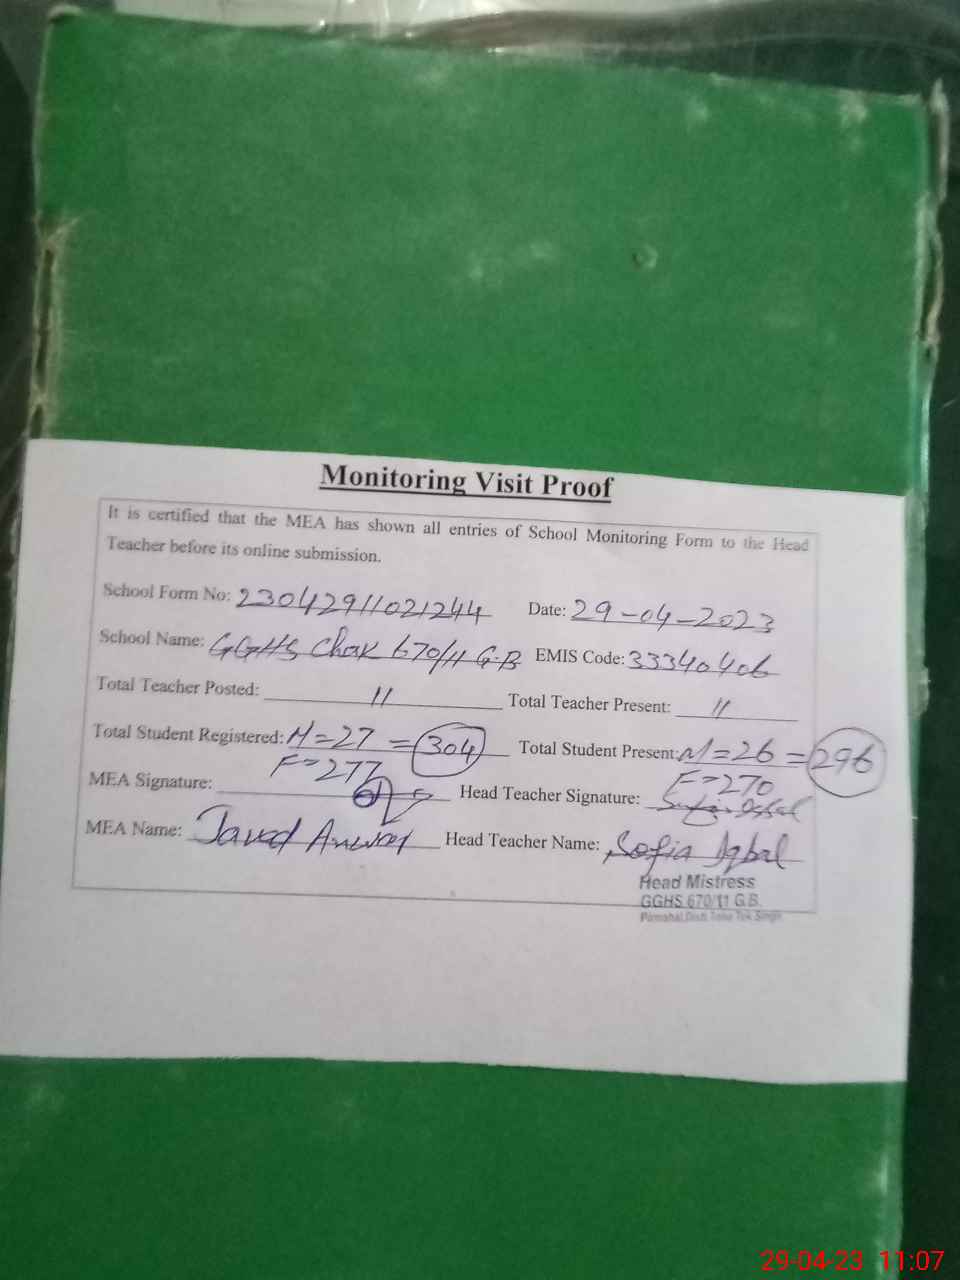 Monitoring Visit Proof
It is certified that the MEA has shown all entries of School Monitoring Form to the Head
Teacher before its online submission.
School Form No: 23042911021244 Date: 29-04-2023
School Name: GGHS Chak 670/11 G.B EMIS Code: 33340406
Total Teacher Posted: 11 Total Teacher Present: 11
Total Student Registered: M=27 = 304 Total Student Present: M=26 = 296
F=277 F=270
MEA Signature: Head Teacher Signature: Sofia Iqbal
MEA Name: Javed Anwar Head Teacher Name: Sofia Iqbal
Head Mistress
GGHS 670/11 G.B.
Pirmahal Distt Toba Tek Singh
29-04-23 11:07